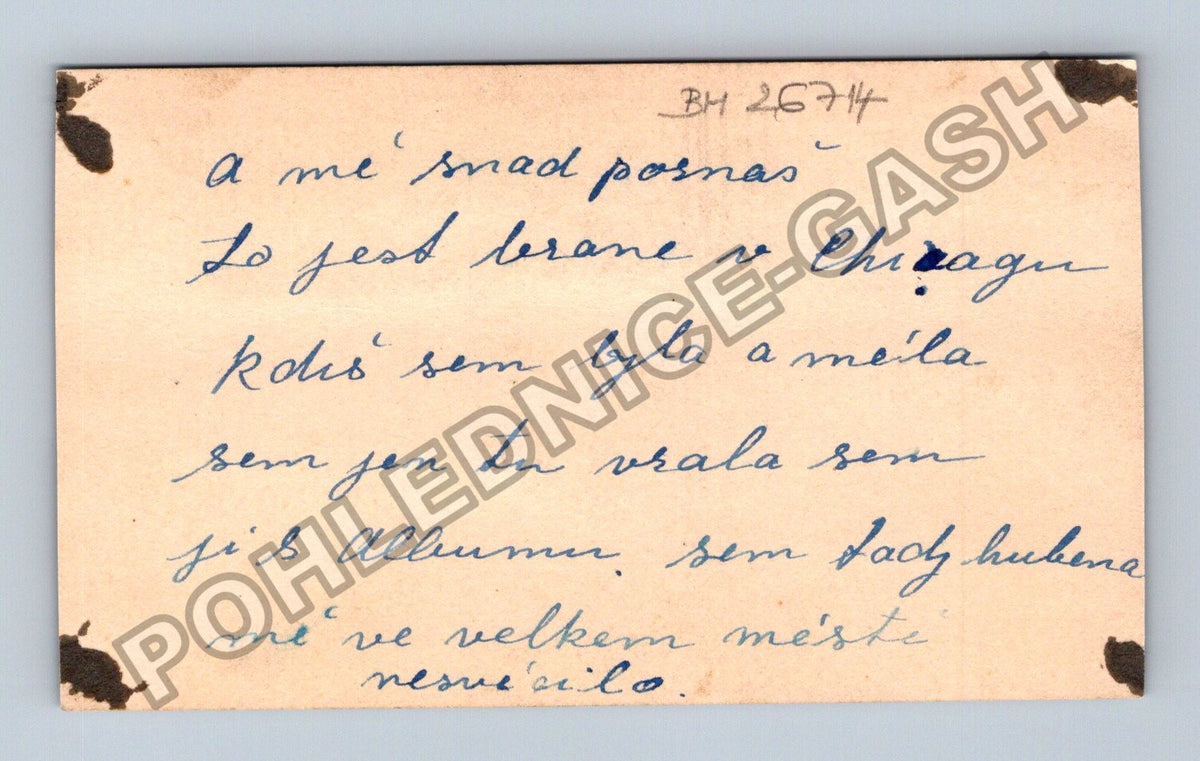 BH 26714
a mé snad posnaš
to jest brane v Chicagu
kdiš sem byla a méla
sem jen tu vzala sem
ji s Albumu. sem tady hubena
mé ve velkem mésté
nesvécilo.
POHLEDNICE-GASH